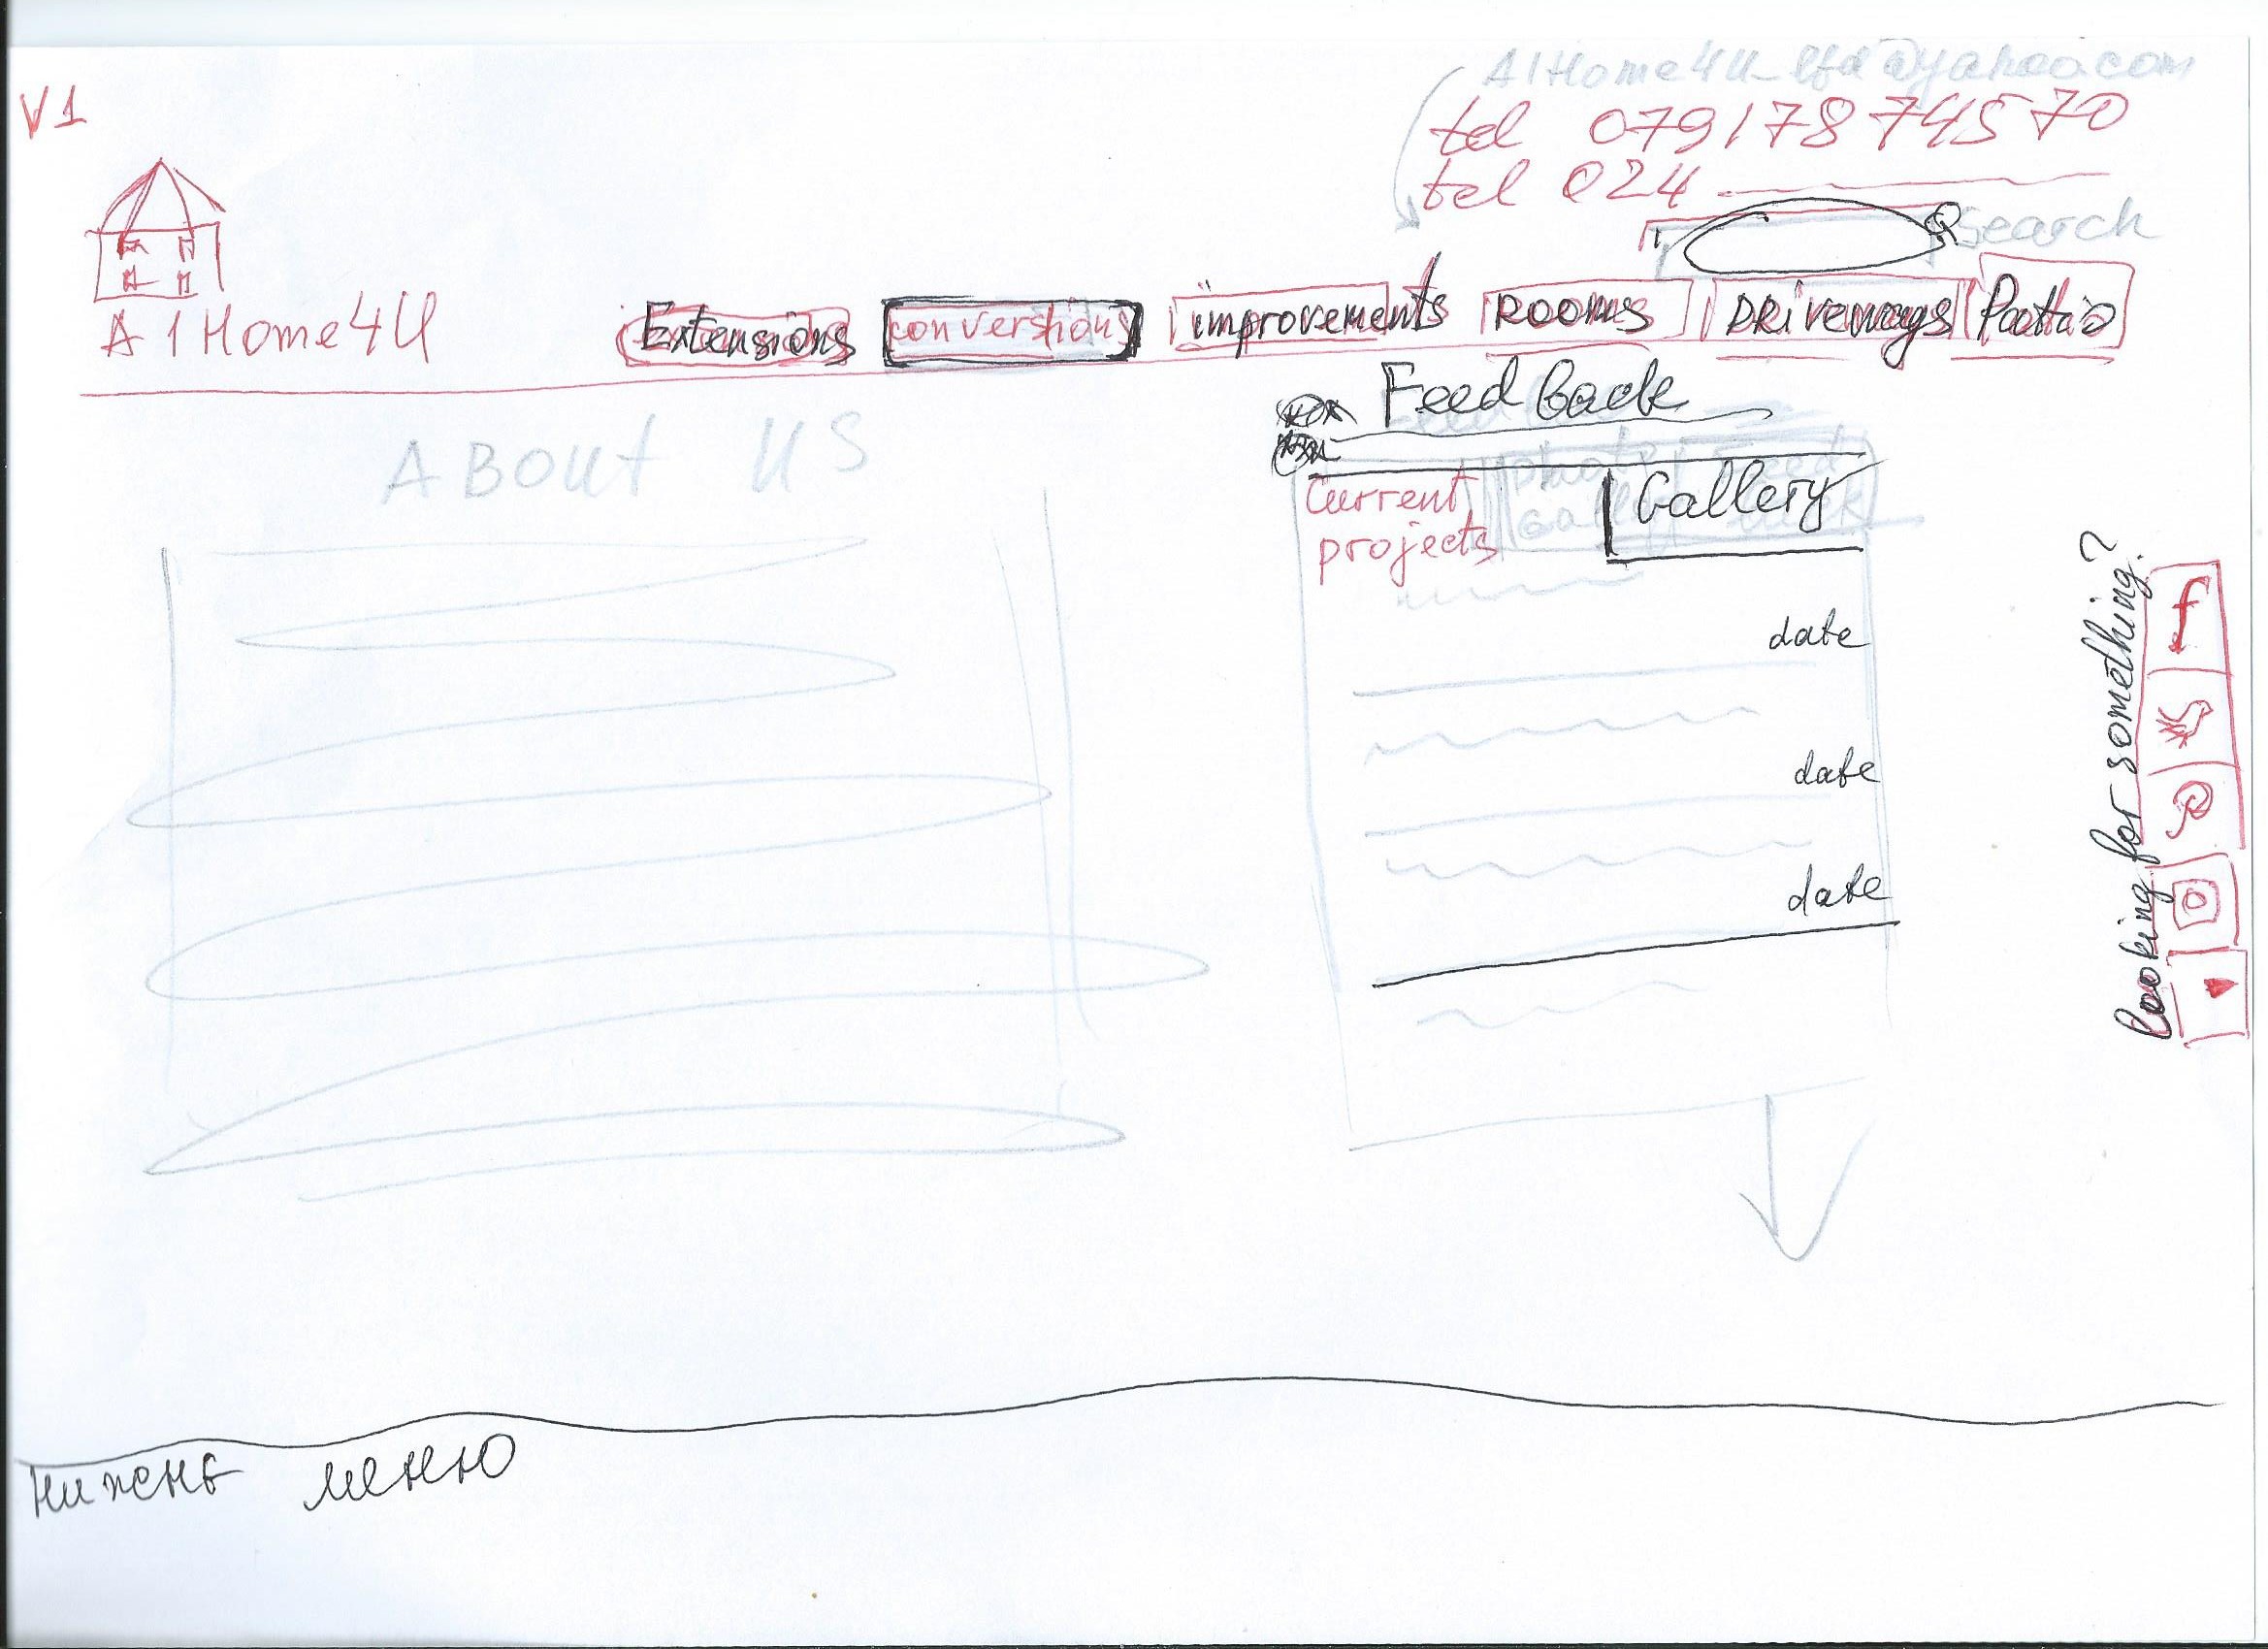 V1
A1Home4U_ltd@yahoo.com
tel 07917874570
tel 024
Search
A1Home4U
Extensions conversions improvements Rooms DRiveways Pattio
Feed back
ABOUT US
Current projects
Gallery
date
date
date
looking for something?
f
нижнє меню